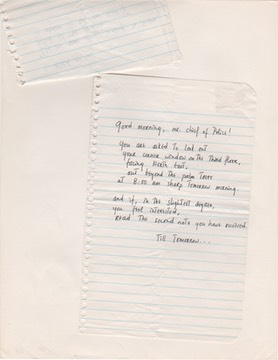 Good morning, mr. chief of Police!
You are asked to look out
your corner window on the third floor,
facing North East,
out beyond the palm Trees
at 8:00 am sharp Tomorrow morning.
and if, in the slightest degree,
you feel interested,
read the second note you have received.
Till Tomorrow...